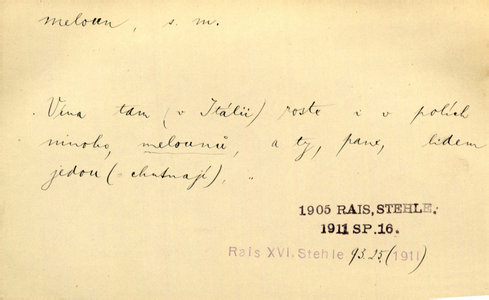 meloun, s. m.
Vína tam (v Itálii) roste i v polích
mnoho, melounů, a ty, pane, lidem
jedou (= chutnají). "
1905 RAIS, STEHLE.
1911 SP. 16.
Rais XVI. Stehle 93.25 (1911)